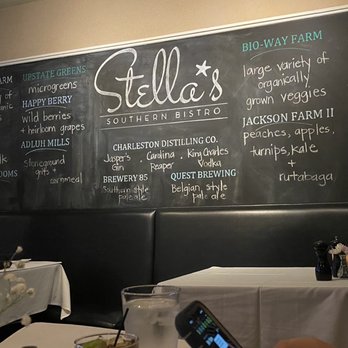 ARM
UPSTATE GREENS
microgreens
HAPPY BERRY
wild berries
+ heirloom grapes
ADLUH MILLS
Stoneground
grits +
cornmeal
OOMS
Stella's
SOUTHERN BISTRO
CHARLESTON DISTILLING CO.
Jasper's Gin
Carolina Reaper
King Charles Vodka
BREWERY 85
Southern style
pale ale
QUEST BREWING
Belgian style
pale ale
BIO-WAY FARM
large variety of
organically
grown veggies
JACKSON FARM II
peaches, apples,
turnips, kale
+
rutabaga